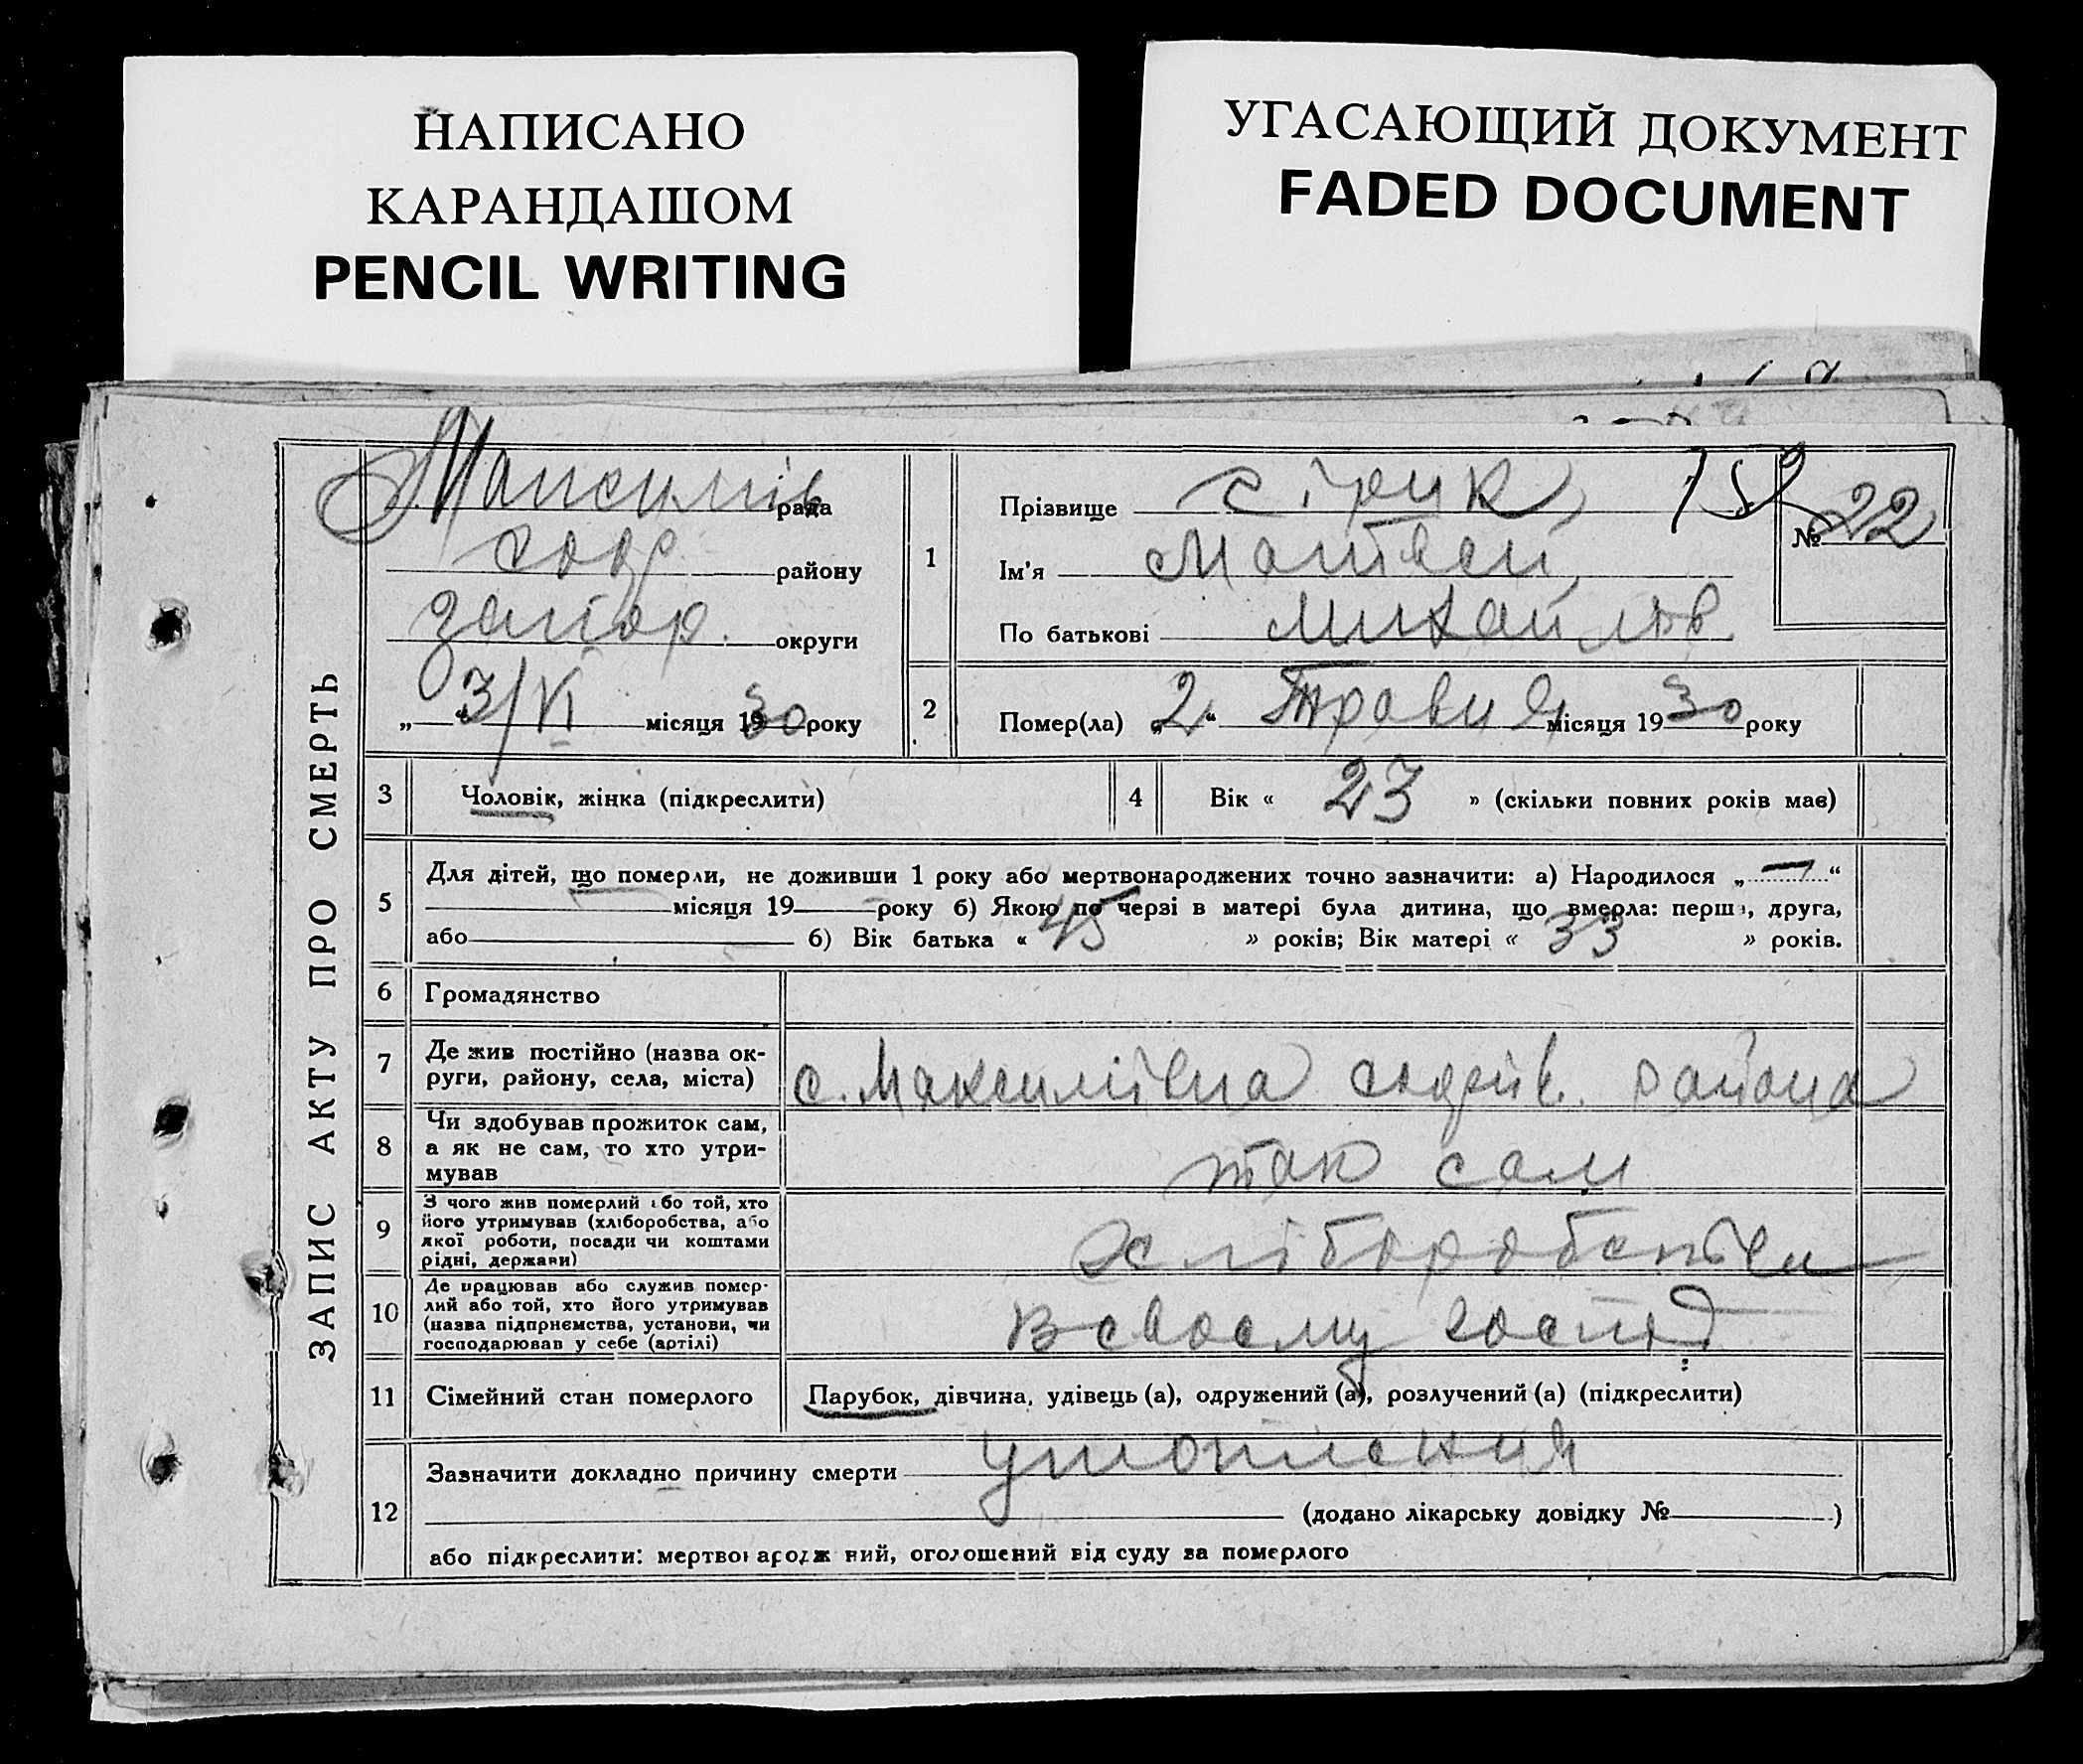 НАПИСАНО
КАРАНДАШОМ
PENCIL WRITING
УГАСАЮЩИЙ ДОКУМЕНТ
FADED DOCUMENT
ЗАПИС АКТУ ПРО СМЕРТЬ
Максимів рада
району
Запор. округи
„ 3/VI “ місяця 1930 року
1
Прізвище Сірик
Ім'я Матвей
По батькові Михайлов
№ 22
2
Помер(ла) „2“ Травня місяця 1930 року
3 Чоловік, жінка (підкреслити)
4 Вік « 23 » (скільки повних років має)
5
Для дітей, що померли, не доживши 1 року або мертвонароджених точно зазначити: а) Народилося „ — “
місяця 19 року б) Якою по черзі в матері була дитина, що вмерла: перша, друга,
або б) Вік батька « 45 » років; Вік матері « 33 » років.
6 Громадянство
7
Де жив постійно (назва ок-
руги, району, села, міста)
с. Максимівка района
8
Чи здобував прожиток сам,
а як не сам, то хто утри-
мував
так сам
9
З чого жив померлий або той, хто
його утримував (хліборобства, або
якої роботи, посади чи коштами
рідні, держави)
хліборобства
10
Де працював або служив помер-
лий або той, хто його утримував
(назва підприємства, установи, чи
господарював у себе (артілі)
в своему господ
11 Сімейний стан померлого
Парубок, дівчина, удівець (а), одружений (а), розлучений (а) (підкреслити)
12
Зазначити докладно причину смерти утопления
(додано лікарську довідку № )
або підкреслити: мертвонароджений, оголошений від суду за померлого